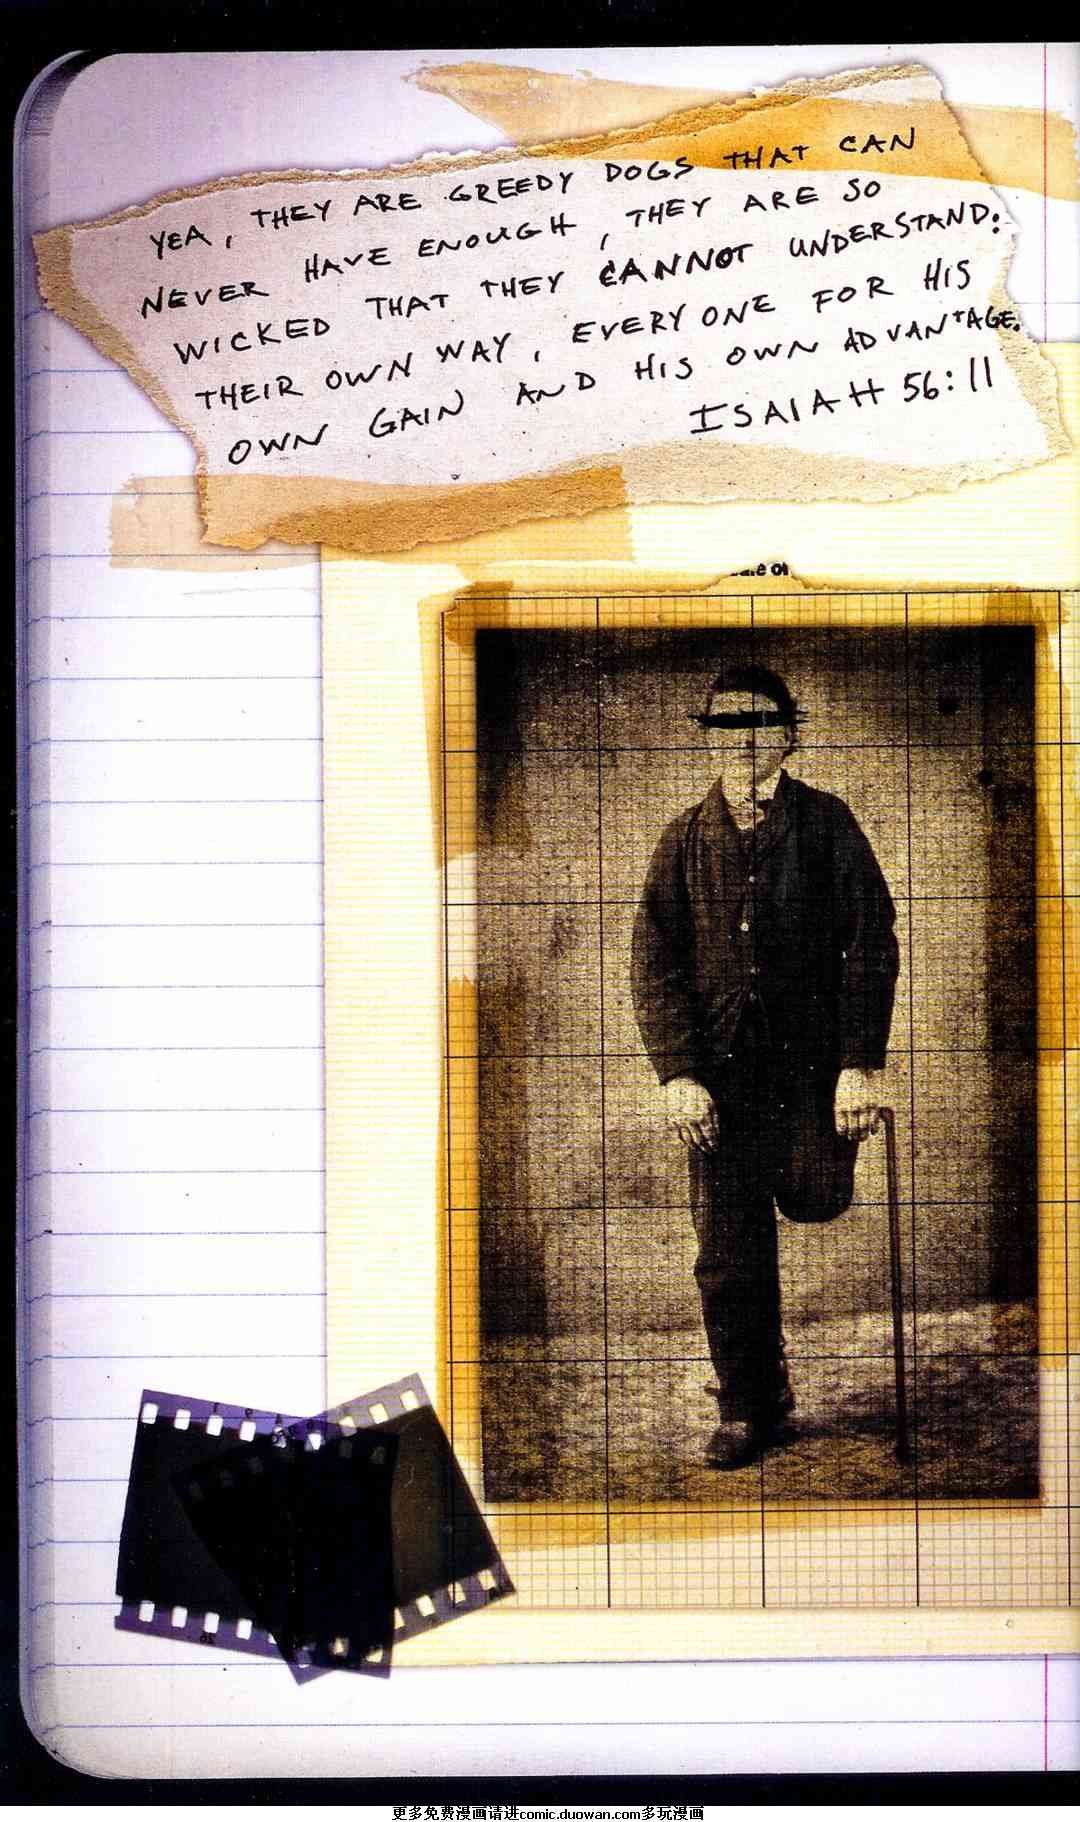 YEA, THEY ARE GREEDY DOGS THAT CAN
NEVER HAVE ENOUGH, THEY ARE SO
WICKED THAT THEY CANNOT UNDERSTAND.
THEIR OWN WAY, EVERYONE FOR HIS
OWN GAIN AND HIS OWN ADVANTAGE.
ISAIAH 56:11
更多免费漫画请进comic.duowan.com多玩漫画